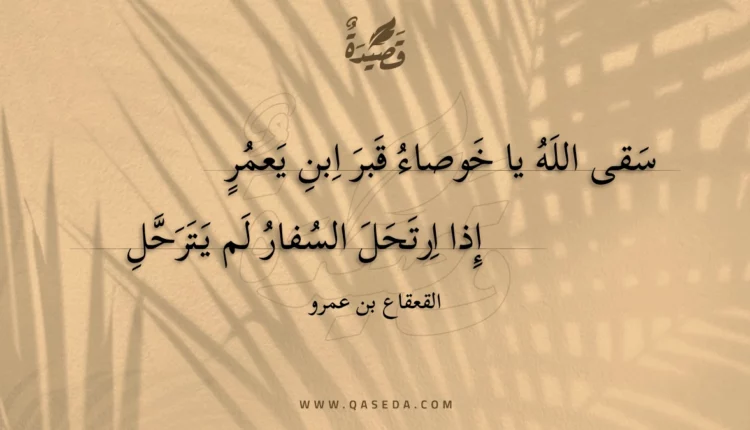 قَصِيْدَةٌ
سَقى اللَهُ يا خَوصاءُ قَبرَ اِبنِ يَعمُرٍ
إِذا اِرتَحَلَ السُفارُ لَم يَتَرَحَّلِ
القعقاع بن عمرو
WWW.QASEDA.COM